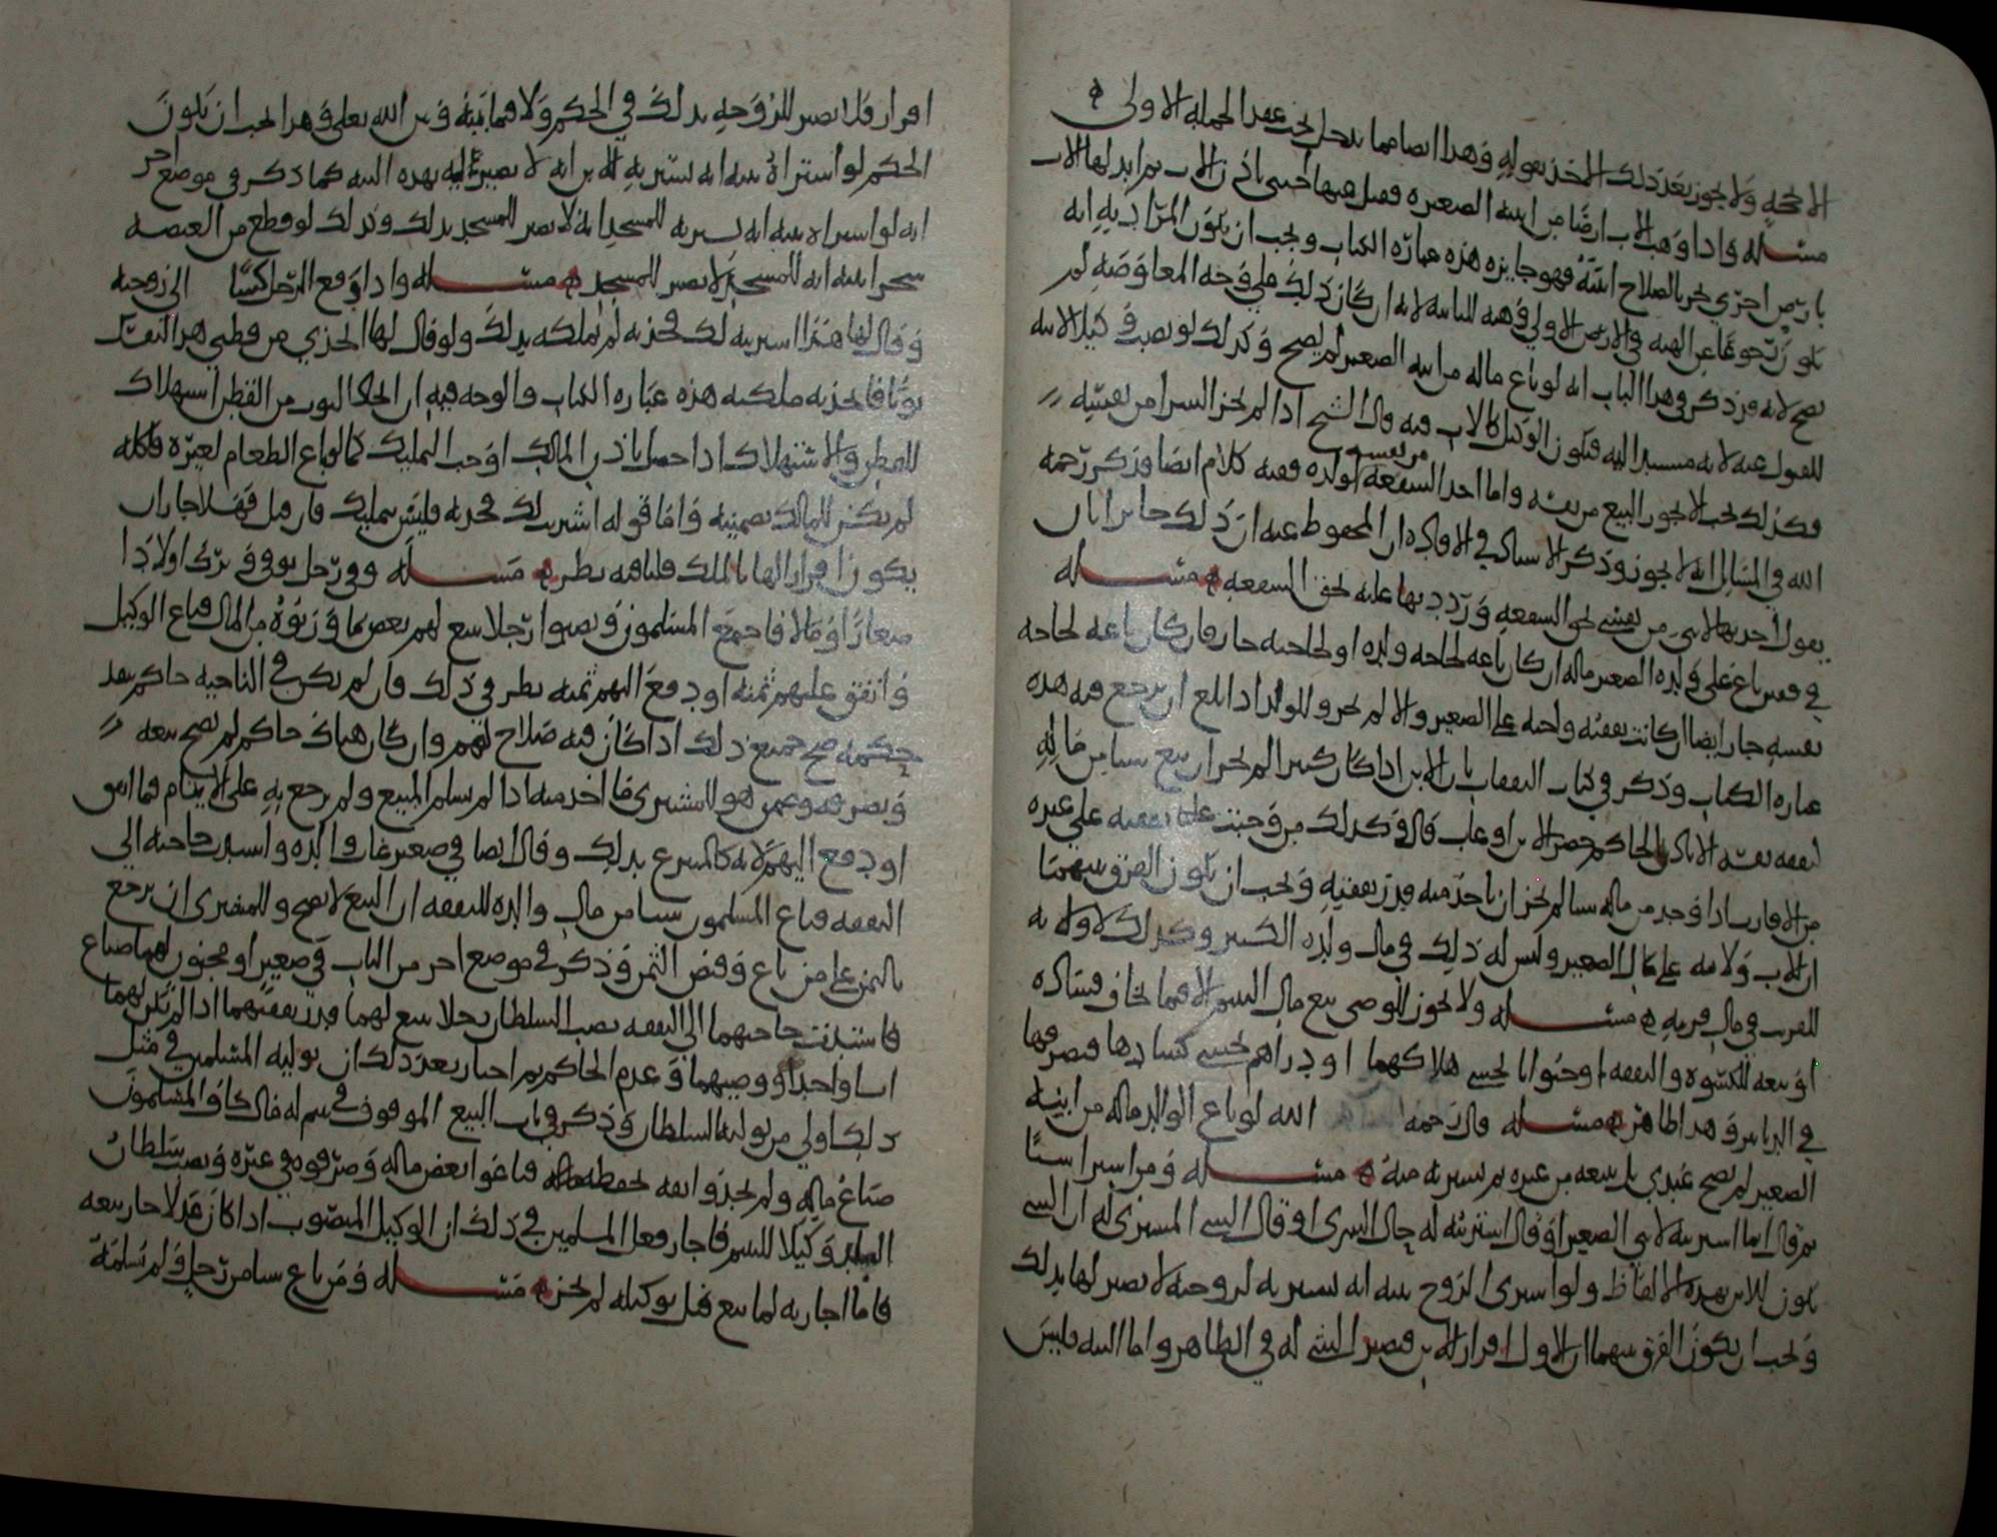 الا بحجة ولا يجوز بعد ذلك الأخذ بقوله وهذا ايضا مما يدخل تحت عقد الجملة الاولى
مسئلة واذا وهب الاب ارضا من ابنه الصغير فقبل عنها اجنبي باذن الاب ثم ابدلها الاب
بارض اخرى تحريا لصلاح ابنه فهو جايز هذه عبارة الكتاب ويجب ان يكون المراد به انه
يكون رجوعا عن الهبة في الارض الاولى وهبة للثانية لانه ان كان ذلك على وجه المعاوضة لم
يصح لانه قد ذكر في هذا الباب انه لو باع ماله من ابنه الصغير لم يصح وكذلك لو نصب وكيلا لابنه
للقبول عنه لانه مستند اليه فيكون الوكيل كالاب فيه قال الشيخ اذا لم يجز الشرا من نفسه
فكذلك يجب الا يجوز البيع من نفسه واما اخذ الشفعة من نفسه لولده ففيه كلام ايضا وذكر رحمه
الله في المسائل انه لا يجوز وذكر الاستاذ في الافادة ان المحفوظ عنه ان ذلك جايز بان
يقول اخذتها لابني من نفسي بحق الشفعة ورددتها عليه بحق الشفعة مسئلة
في فقير باع على ولده الصغير ماله ان كان باعه لحاجة ولده او لحاجته جاز فان كان باعه لحاجة
نفسه جاز ايضا ان كانت نفقته واجبة على الصغير والا لم يجز وللولد اذا بلغ ان يرجع فيه هذه
عبارة الكتاب وذكر في كتاب النفقات بان الابن اذا كان كبيرا لم يجز ان يبيع شيا من ماله
لنفقة نفسه الا باذن الحاكم حضر الابن او غاب قال وكذلك من وجبت عليه نفقته على غيره
من الاقارب اذا وجد من ماله شيا لم يجز ان ياخذ منه قدر نفقته ويجب ان يكون الفرق بينهما
ان للاب ولاية على مال الصغير وليس له ذلك في مال ولده الكبير وكذلك لا ولاية
للقريب في مال قريبه مسئلة ولا يجوز للوصي بيع مال اليتيم الا فيما يخاف فساده
او بيعه للكسوة والنفقة او حيوانا يخشى هلاكهما او دراهم يخشى كسادها فيصرفها
في الدنانير وهذا ظاهر مسئلة قال رحمه الله لو باع الوالد ماله من ابنه
الصغير لم يصح عندي بل يبيعه من غيره ثم يشتريه منه مسئلة ومن اشترا شيا
ثم قال انما اشتريته لابني الصغير او قال اشتريته له حال الشرى او قال الشي المشترى له ان الشي
يكون للابن بهذه الالفاظ ولو اشترى الزوج بنية انه يشتريه لزوجته لا يصير لها بذلك
ويجب ان يكون الفرق بينهما ان الاول اقرار للابن فيصير الشي له في الظاهر واما النية فليس
اقرار فلا يصير للزوجة بذلك في الحكم ولا فيما بينه وبين الله تعلى وهذا يجب ان يكون
الحكم لو اشترا لابنه بنية انه يشتريه للابن انه لا يصير لابنه بهذه النية كما ذكر في موضع اخر
انه لو اشترا بنية انه يشتريه للمسجد انه لا يصير للمسجد بذلك وكذلك لو قطع من الغيضة
شجرا بنية انه للمسجد لا يصير للمسجد مسئلة واذا دفع الرجل شيا الى زوجته
وقال لها هذا اشتريته لك فخذيه لم تملكه بذلك ولو قال لها اتخذي من قطني هذا لنفسك
ثوبا فاتخذته ملكته هذه عبارة الكتاب والوجه فيه ان اتخاذ الثوب من القطن استهلاك
للقطن والاستهلاك اذا حصل باذن المالك اوجب التمليك كمالو باع الطعام لغيره فاكله
لم يكن للمالك تضمينه واما قوله اشتريت لك فخذيه فليس بتمليك فان قيل فهلا جاز ان
يكون اقرارا لها بالملك قلنا فيه نظر مسئلة وفي رجل توفي وترك اولادا
صغارا ومالا فاجمع المسلمون ونصبوا رجلا يبيع لهم بعض ما ورثوه من المال فباع الوكيل
وانفق عليهم ثمنه او دفع اليهم ثمنه نظر في ذلك فان لم يكن في الناحية حاكم ينفذ
حكمه صح جميع ذلك اذا كان فيه صلاح لهم وان كان هناك حاكم لم يصح بيعه
ويصرفه وغرم هو للمشترى ما اخذ منه اذا لم يسلم المبيع ولم يرجع به على الايتام فيما انفق
او دفع اليهم لانه كالمتبرع بذلك وقال ايضا في صغير غاب والده واشتدت حاجته الى
النفقة فباع المسلمون شيا من مال والده للنفقة ان البيع لا يصح وللمشترى ان يرجع
بالثمن على من باع وقبض الثمن وذكر في موضع اخر من الباب في صغير او مجنون لهما ضياع
فاشتدت حاجتهما الى النفقة نصب السلطان رجلا يبيع لهما قدر نفقتهما اذا لم يكن لهما
اب ولا جد او وصيهما وعدم الحاكم ثم اختار بعد ذلك ان تولية المسلمين في مثل
ذلك اولى من تولية السلطان وذكر في باب البيع الموقوف في يتيم له مال كاد المسلمون
ضياع ماله ولم يجدوا ثقة لحفظه فباعوا بعض ماله وصرفوه في غيره ونصب سلطان
البلد وكيلا لليتيم فاجاز فعل المسلمين في ذلك ان الوكيل المنصوب اذا كان عدلا جاز بيعه
فاما اجازته لما بيع قبل توكيله لم يجز مسئلة ومن باع شيا من رجل ولم يسلمه